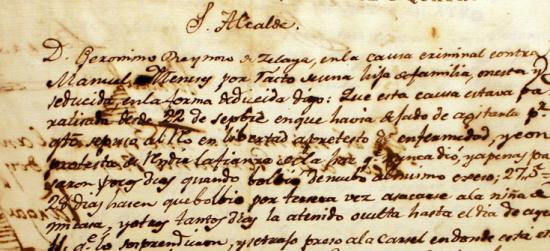 S. Alcalde.
D. Geronimo Reynoso de Zelaya, en la causa criminal contra
Manuel por rapto de una hija de familia, onesta y
seducida, en la forma deducida digo: Que esta causa estava pa
ralisada desde 22 de Sepbre en que havia dejado de agitarla pr
qto se puso al Rº en libertad a pretesto de enfermedad, y con
protesta de la fianza de la haz q. nunca dió, y apenas pa
saron dias quando bolbió de nuebo al mismo exeso; 27, o
28 dias hacen que bolbio por tercera vez a sacarse a la niña de
mi casa, y otros tantos dias la atenido oculta hasta el dia de aye
q. lo sorprendieron, y se trajo preso a la Carsel en donde esta